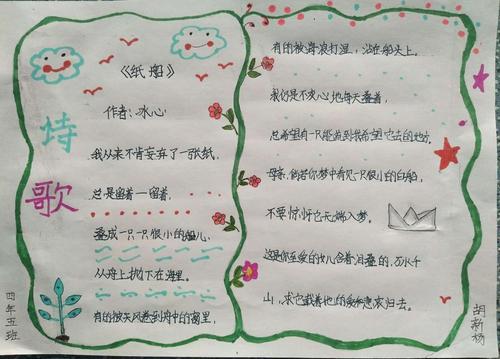 诗歌
《纸船》
作者：冰心
我从来不肯妄弃了一张纸，
总是留着一留着，
叠成一只一只很小的船儿，
从舟上抛下在海里。
有的被天风卷到舟中的窗里，
四年五班
有的被海浪打湿，沾在船头上。
我仍是不灰心地每天叠着，
总希望有一只能流到我希望它去的地方。
母亲，倘若你梦中看见一只很小的白船，
不要惊讶它无端入梦。
这是你至爱的女儿含着泪叠的，万水千
山，求它载着她的爱和悲哀归去。
胡新杨